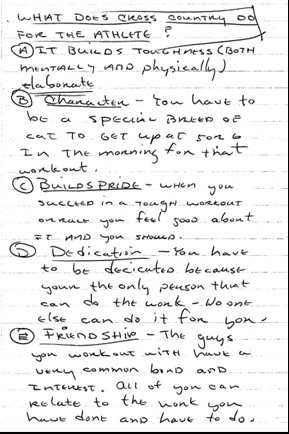 . WHAT DOES CROSS COUNTRY DO
FOR THE ATHLETE?
(A) IT BUILDS TOUGHNESS (BOTH
MENTALLY AND physically)
elaborate
(B) Character - You have to
be a special BREED OF
CAT TO GET up at 5 or 6
In the morning for that
workout.
(C) BUILDS PRIDE - when you
SUCCEED in a TOUGH WORKOUT
OR RACE you feel good about
IT AND you SHOULD.
(D) Dedication - You have
to be decicated because
your the only person that
can do the work - No one
Else can do it for you.
(E) FRIENDSHIP - The guys
you workout with have a
very common bond AND
INTEREST. All of you can
Relate to the work you
have done and have to do.